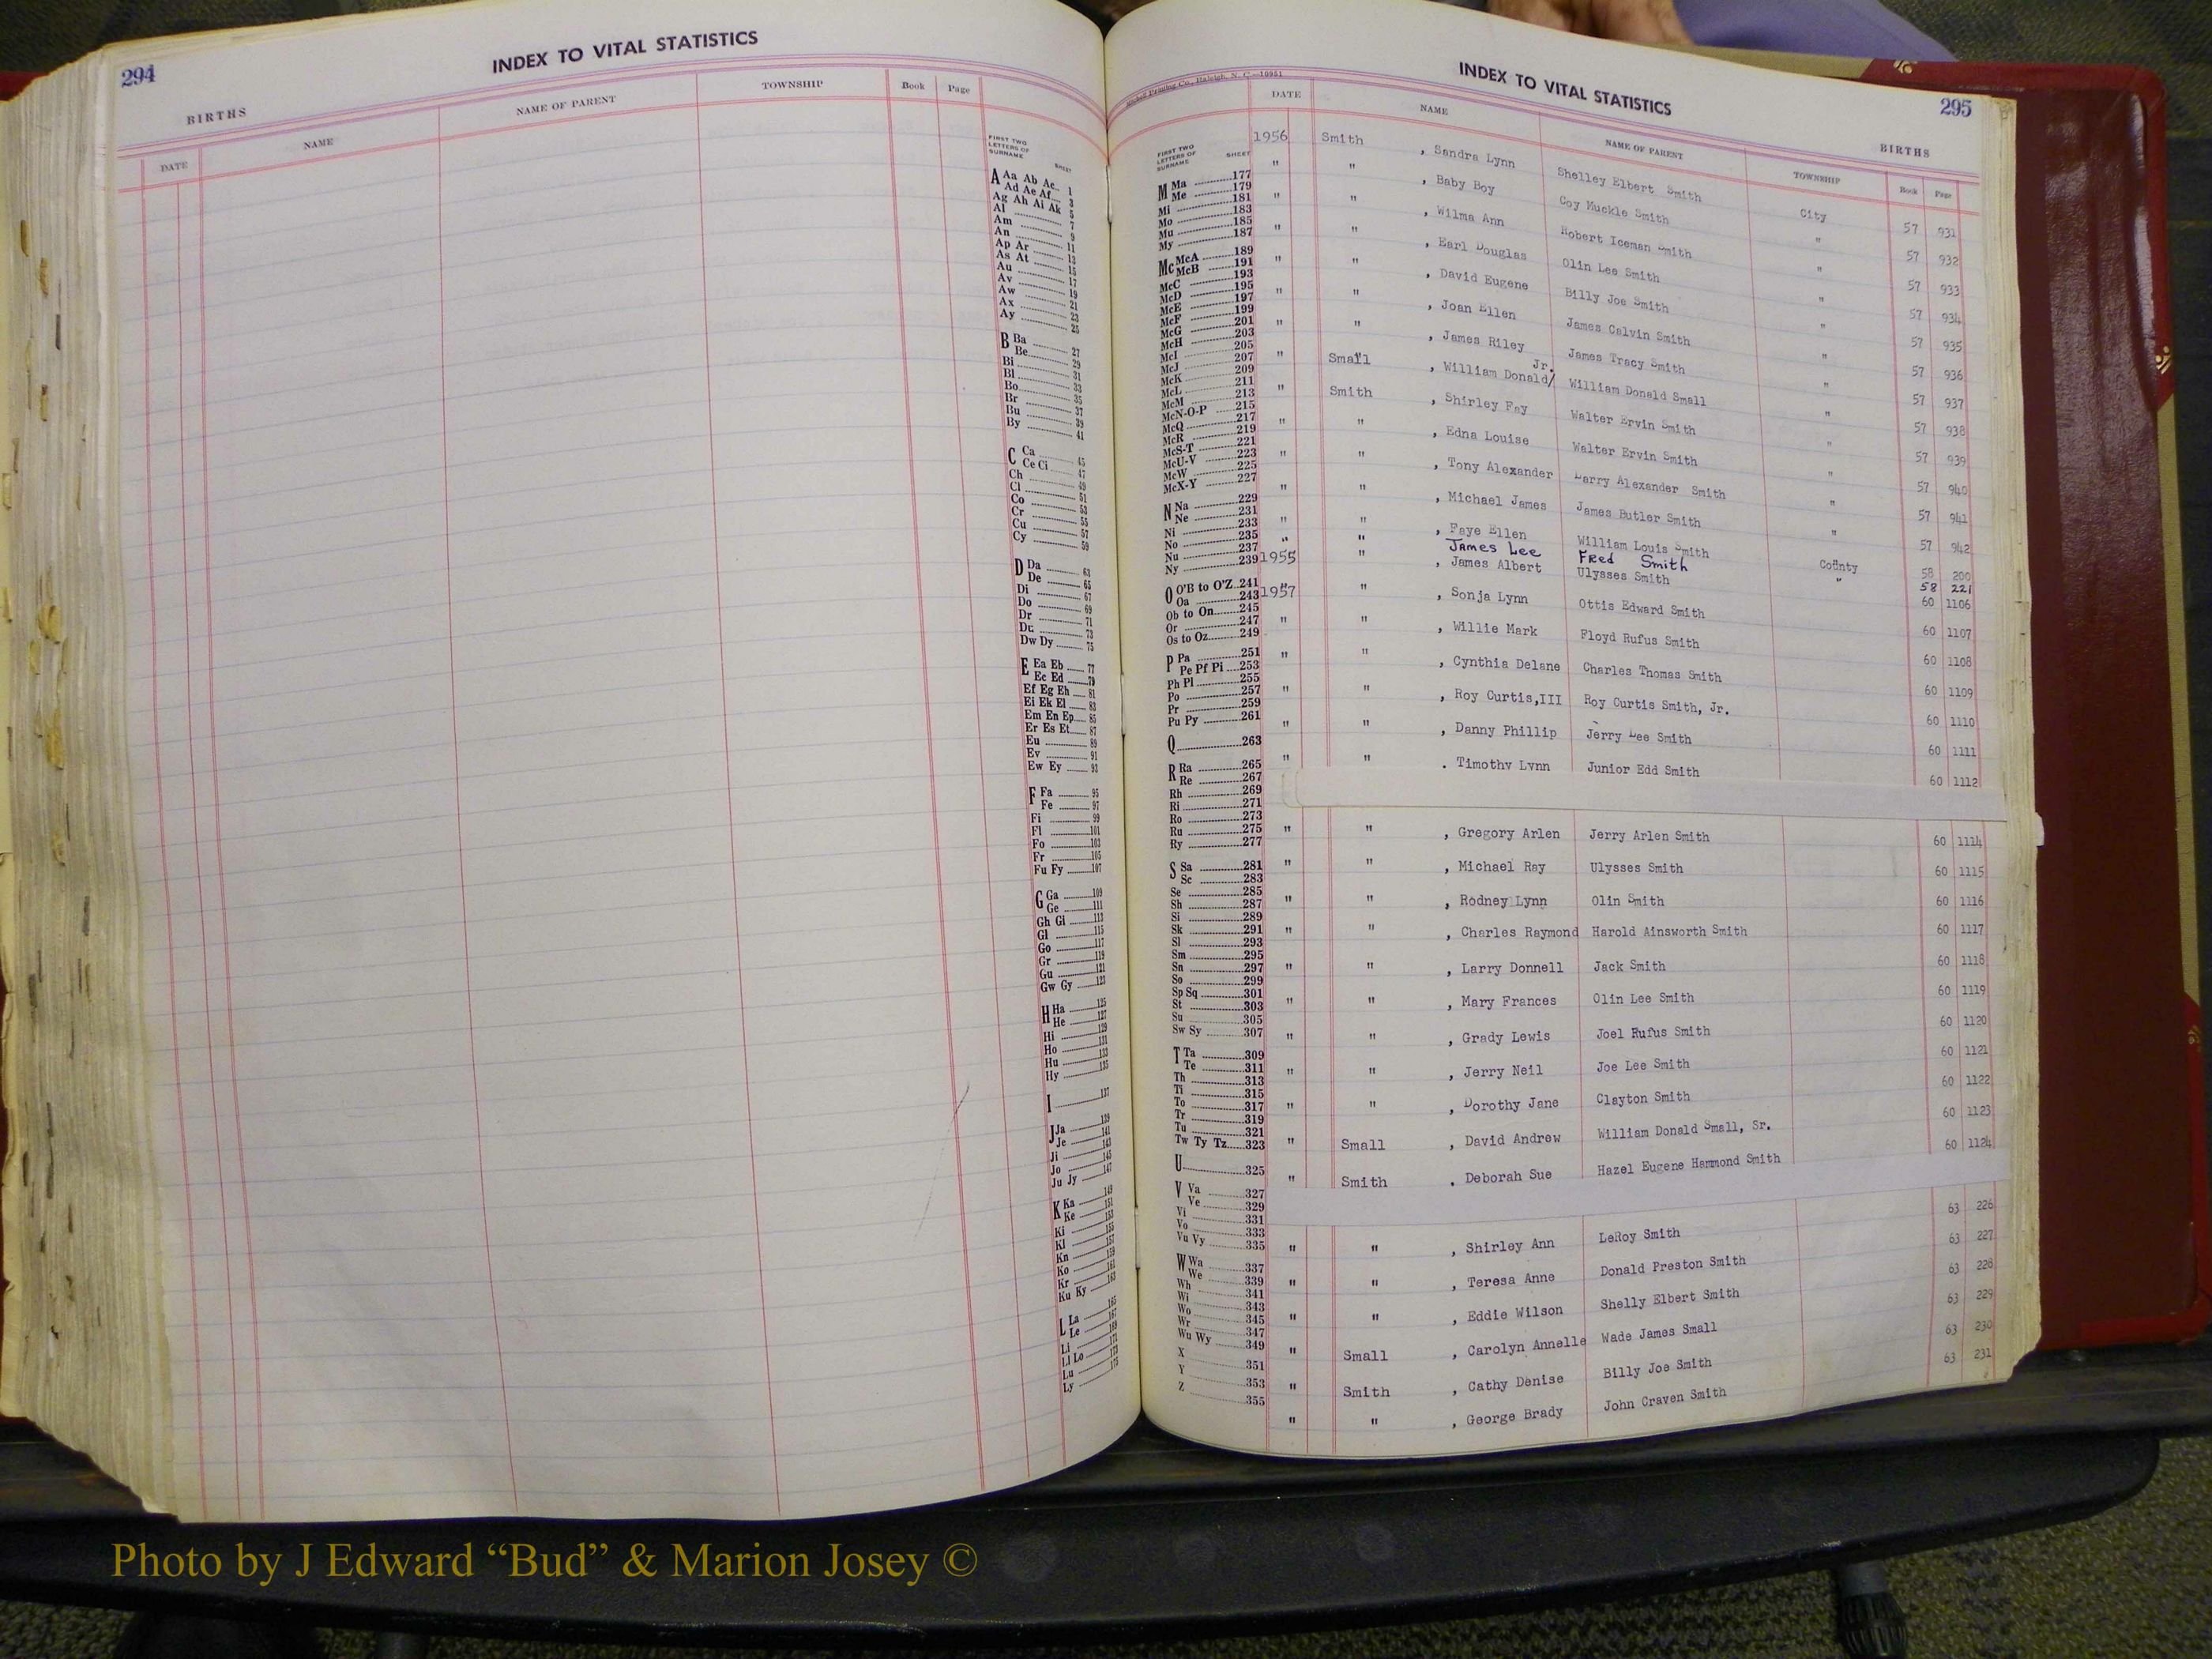 294
INDEX TO VITAL STATISTICS
BIRTHS
DATE NAME NAME OF PARENT TOWNSHIP Book Page
FIRST TWO LETTERS OF SURNAME SHEET
A Aa Ab Ac 1
Ad Ae Af 3
Ag Ah Ai Ak 5
Al 7
Am 9
An 11
Ap Ar 13
As At 15
Au 17
Av 19
Aw 21
Ax 23
Ay 25
B Ba 27
Be 29
Bi 31
Bl 33
Bo 35
Br 37
Bu 39
By 41
C Ca 45
Ce Ci 47
Ch 49
Cl 51
Co 53
Cr 55
Cu 57
Cy 59
D Da 63
De 65
Di 67
Do 69
Dr 71
Du 73
Dw Dy 75
E Ea Eb 77
Ec Ed 79
Ef Eg Eh 81
Ei Ek El 83
Em En Ep 85
Er Es Et 87
Eu 89
Ev 91
Ew Ey 93
F Fa 95
Fe 97
Fi 99
Fl 101
Fo 103
Fr 105
Fu Fy 107
G Ga 109
Ge 111
Gh Gi 113
Gl 115
Go 117
Gr 119
Gu 121
Gw Gy 123
H Ha 125
He 127
Hi 129
Ho 131
Hu 133
Hy 135
I 137
J Ja 139
Je 141
Ji 143
Jo 145
Ju Jy 147
K Ka 149
Ke 151
Ki 153
Kl 155
Kn 157
Ko 159
Kr 161
Ku Ky 163
L La 165
Le 167
Li 169
Ll Lo 171
Lu 173
Ly 175
INDEX TO VITAL STATISTICS
295
BIRTHS
DATE NAME NAME OF PARENT TOWNSHIP Book Page
FIRST TWO LETTERS OF SURNAME SHEET
M Ma 177
Me 179
Mi 181
Mo 183
Mu 185
My 187
Mc McA 189
McB 191
McC 193
McD 195
McE 197
McF 199
McG 201
McH 203
McI 205
McJ 207
McK 209
McL 211
McM 213
McN-O-P 215
McQ 217
McR 219
McS-T 221
McU-V 223
McW 225
McX-Y 227
N Na 229
Ne 231
Ni 233
No 235
Nu 237
Ny 239
O O'B to O'Z 241
Oa 243
Ob to On 245
Or 247
Os to Oz 249
P Pa 251
Pe Pf Pi 253
Ph Pl 255
Po 257
Pr 259
Pu Py 261
Q 263
R Ra 265
Re 267
Rh 269
Ri 271
Ro 273
Ru 275
Ry 277
S Sa 281
Sc 283
Se 285
Sh 287
Si 289
Sk 291
Sl 293
Sm 295
Sn 297
So 299
Sp Sq 301
St 303
Su 305
Sw Sy 307
T Ta 309
Te 311
Th 313
Ti 315
To 317
Tr 319
Tu 321
Tw Ty Tz 323
U 325
V Va 327
Ve 329
Vi 331
Vo 333
Vu Vy 335
W Wa 337
We 339
Wh 341
Wi 343
Wo 345
Wr 347
Wu Wy 349
X 351
Y 353
Z 355
1956 Smith , Sandra Lynn Shelley Elbert Smith City 57 931
" " , Baby Boy Coy Muckle Smith " 57 932
" " , Wilma Ann Robert Iceman Smith " 57 933
" " , Earl Douglas Olin Lee Smith " 57 934
" " , David Eugene Billy Joe Smith " 57 935
" " , Joan Ellen James Calvin Smith " 57 936
" " , James Riley James Tracy Smith " 57 937
" Small , William Donald/ Jr. William Donald Small " 57 938
" Smith , Shirley Fay Walter Ervin Smith " 57 939
" " , Edna Louise Walter Ervin Smith " 57 940
" " , Tony Alexander Larry Alexander Smith " 57 941
" " , Michael James James Butler Smith " 57 942
" " , Faye Ellen William Louis Smith County 58 200
" " James Lee Fred Smith " 58 221
1955 " , James Albert Ulysses Smith 60 1106
1957 " , Sonja Lynn Ottis Edward Smith 60 1107
" " , Willie Mark Floyd Rufus Smith 60 1108
" " , Cynthia Delane Charles Thomas Smith 60 1109
" " , Roy Curtis,III Roy Curtis Smith, Jr. 60 1110
" " , Danny Phillip Jerry Lee Smith 60 1111
" " , Timothy Lynn Junior Edd Smith 60 1112
" " , Gregory Arlen Jerry Arlen Smith 60 1114
" " , Michael Ray Ulysses Smith 60 1115
" " , Rodney Lynn Olin Smith 60 1116
" " , Charles Raymond Harold Ainsworth Smith 60 1117
" " , Larry Donnell Jack Smith 60 1118
" " , Mary Frances Olin Lee Smith 60 1119
" " , Grady Lewis Joel Rufus Smith 60 1120
" " , Jerry Neil Joe Lee Smith 60 1121
" " , Dorothy Jane Clayton Smith 60 1122
" Small , David Andrew William Donald Small, Sr. 60 1123
" Smith , Deborah Sue Hazel Eugene Hammond Smith 60 1124
" " , Shirley Ann LeRoy Smith 63 226
" " , Teresa Anne Donald Preston Smith 63 227
" " , Eddie Wilson Shelly Elbert Smith 63 228
" Small , Carolyn Annelle Wade James Small 63 229
" Smith , Cathy Denise Billy Joe Smith 63 230
" " , George Brady John Craven Smith 63 231
Photo by J Edward “Bud” & Marion Josey ©